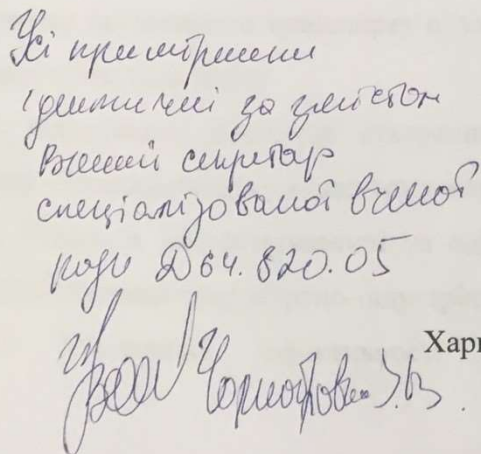 Усі примірники
ідентичні за змістом
Вчений секретар
спеціалізованої вченої
ради Д64.820.05
Харк